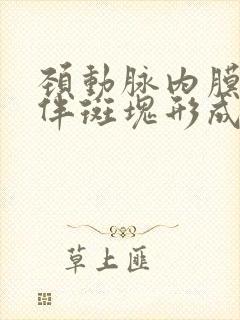 頚動脉内膜
伴斑塊形成
草上匪